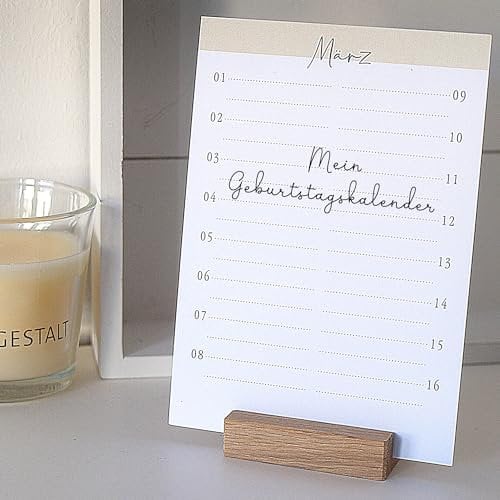 März
01
09
02
10
03
11
Mein
Geburtstagskalender
04
12
05
13
06
14
07
15
08
16
GESTALT